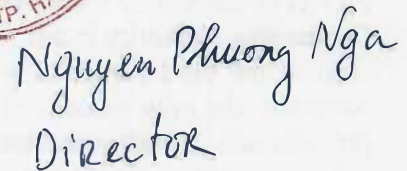 TP. H
Nguyen Phuong Nga
Director